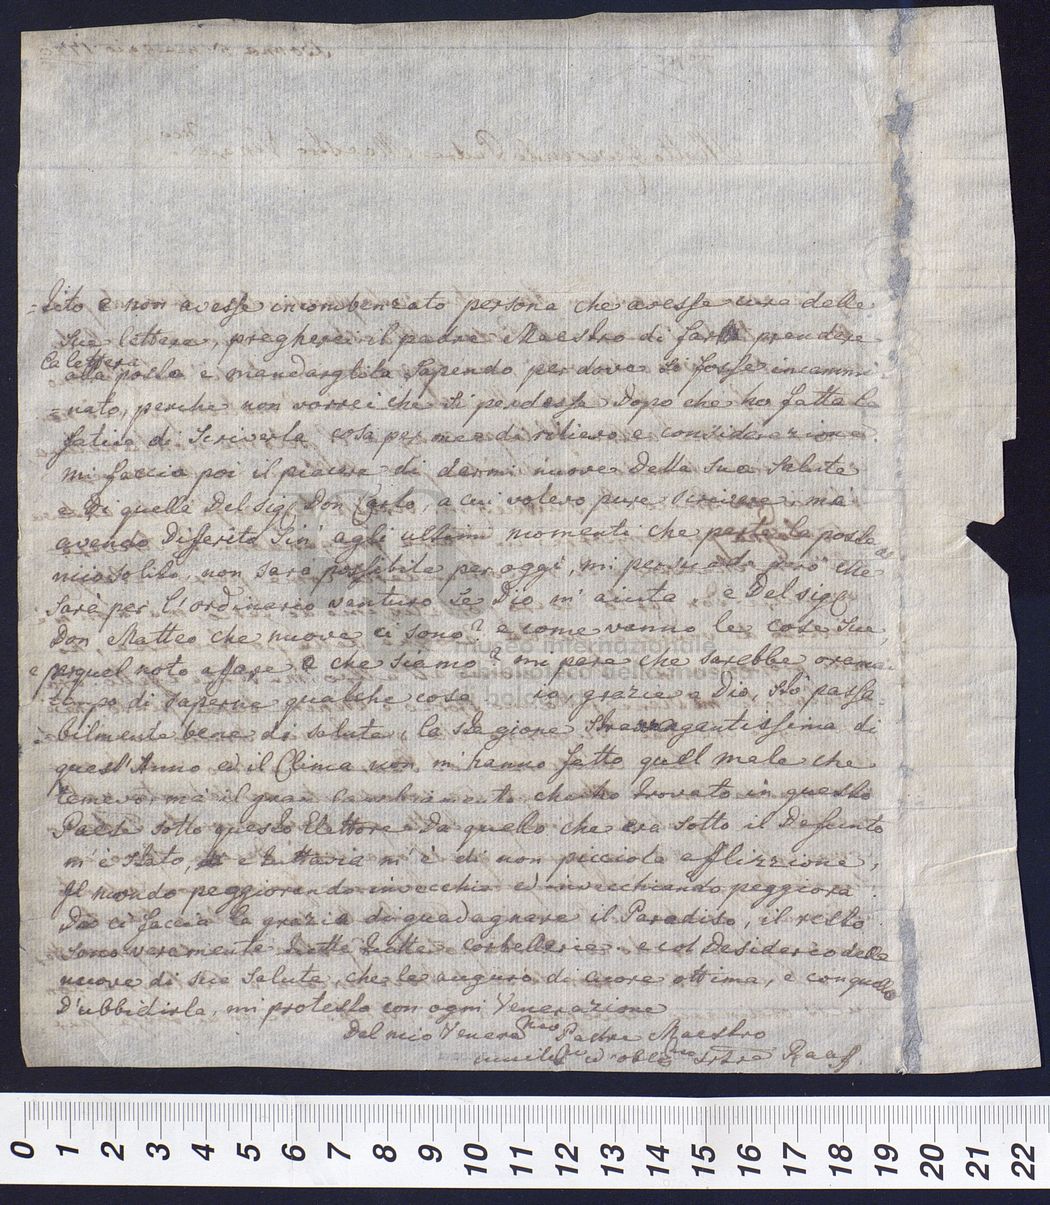 =dito e non avesse incombenzato persona che avesse cura delle
sue lettere, pregherei il padre Maestro di far prendere
la lettera
alla posta e mandargliela sapendo per dove si fosse incammi
=nato, perche non vorrei che si perdesse dopo che ho fatta la
fatica di scriverla cosa per me di rilievo e considerazione.
mi faccia poi il piacere di darmi nuove della sua salute
e di quella del sig Don Carlo, a cui volevo pure scrivere, mà
avendo differito sin' agli ultimi momenti che parte la posta
mio solito, non sarà possibile per oggi, mi persuado però che
sarà per l'ordinario venturo se Dio m' aiuta. e del sig
Don Matteo che nuove ci sono? e come vanno le cose sue,
e per quel noto affare a che siamo? mi pare che sarebbe oramai
tempo di saperne qualche cosa io grazie a Dio, stò passa
=bilmente bene di salute, la stegione stravagantissima di
quest' Anno ed il Clima non m' hanno fatto quell male che
temevo, mà il gran cambiamento che ho trovato in questo
Paese sotto questo Elettore da quello che era sotto il Defunto
m' è stato, e tuttavia m' è di non picciola afflizzione,
Il mondo peggiorando invecchia ed invecchiando peggiora.
Dio ci faccia la grazia di guadagnare il Paradiso, il resto
sono veramente tutte tutte corbellerie. e col desiderio delle
nuove di sue salute, che le auguro di cuore ottima, e con quello
d'ubbidirla, mi protesto con ogni Venerazione
Del mio Venera Padre Maestro
umil ed obl Raaff.
museo internazionale
e biblioteca della musica
bologna
0 1 2 3 4 5 6 7 8 9 10 11 12 13 14 15 16 17 18 19 20 21 22